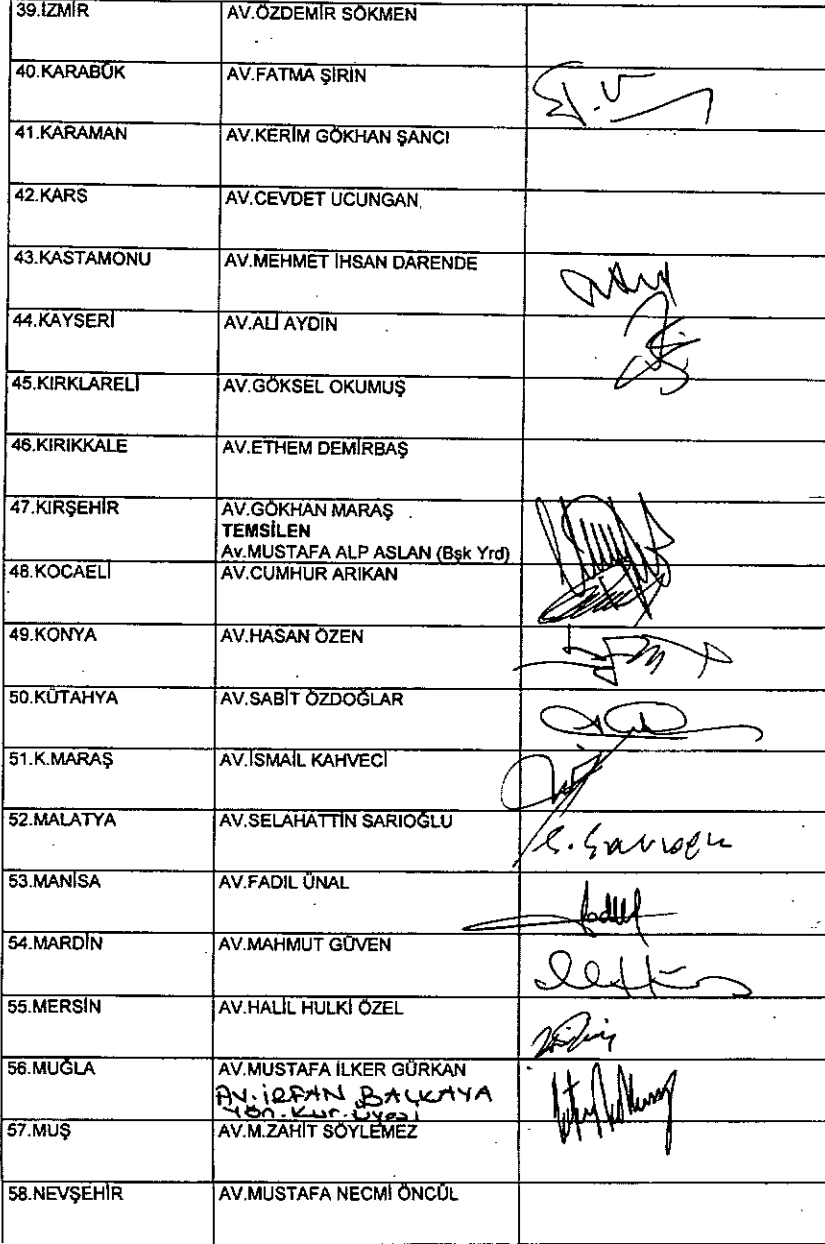 39.İZMİR AV.ÖZDEMİR SÖKMEN
40.KARABÜK AV.FATMA ŞİRİN
41.KARAMAN AV.KERİM GÖKHAN ŞANCI
42.KARS AV.CEVDET UCUNGAN
43.KASTAMONU AV.MEHMET İHSAN DARENDE
44.KAYSERİ AV.ALİ AYDIN
45.KIRKLARELİ AV.GÖKSEL OKUMUŞ
46.KIRIKKALE AV.ETHEM DEMİRBAŞ
47.KIRŞEHİR AV.GÖKHAN MARAŞ
TEMSİLEN
Av.MUSTAFA ALP ASLAN (Bşk Yrd)
48.KOCAELİ AV.CUMHUR ARIKAN
49.KONYA AV.HASAN ÖZEN
50.KÜTAHYA AV.SABİT ÖZDOĞLAR
51.K.MARAŞ AV.İSMAİL KAHVECİ
52.MALATYA AV.SELAHATTİN SARIOĞLU
53.MANİSA AV.FADIL ÜNAL
54.MARDİN AV.MAHMUT GÜVEN
55.MERSİN AV.HALİL HULKİ ÖZEL
56.MUĞLA AV.MUSTAFA İLKER GÜRKAN
AV.İRFAN BALKAYA
Yön.Kur.Üyesi
57.MUŞ AV.M.ZAHİT SÖYLEMEZ
58.NEVŞEHİR AV.MUSTAFA NECMİ ÖNCÜL